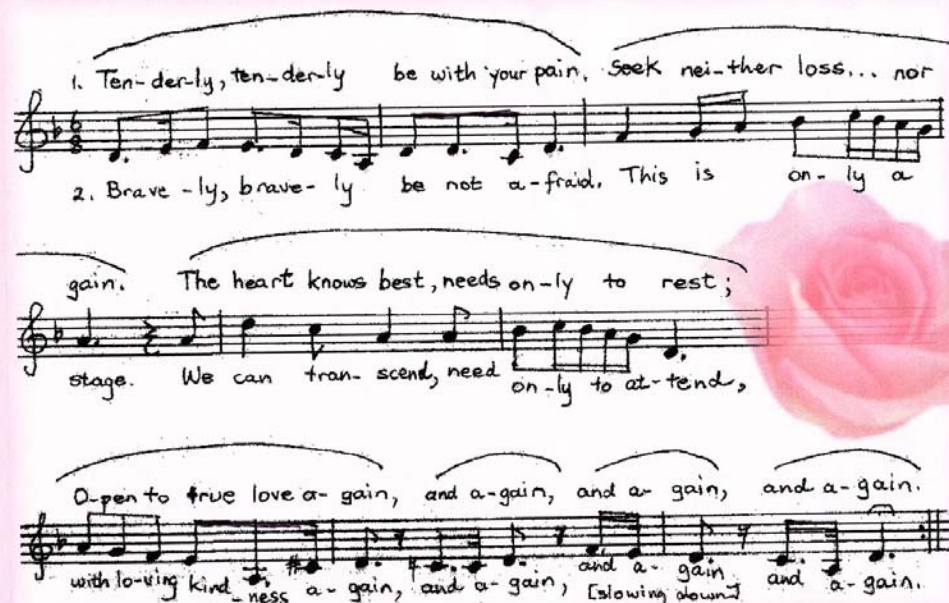 1. Ten-der-ly, ten-der-ly be with your pain, Seek nei-ther loss... nor
6
8
2. Brave-ly, brave-ly be not a-fraid. This is on-ly a
gain. The heart knows best, needs on-ly to rest;
stage. We can tran-scend, need on-ly to at-tend,
O-pen to true love a-gain, and a-gain, and a-gain, and a-gain.
with lo-ving kind-ness a-gain, and a-gain, and a-gain [slowing down] and a-gain.